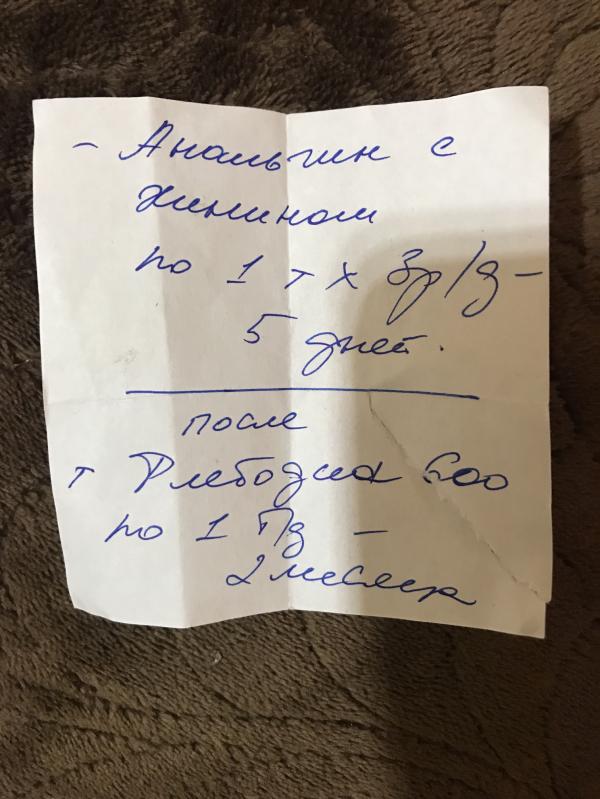 - Анальгин с
хинином
по 1 т х 3р/д -
5 дней.
после
т Флебодиа 600
по 1 т/д -
2 месяца